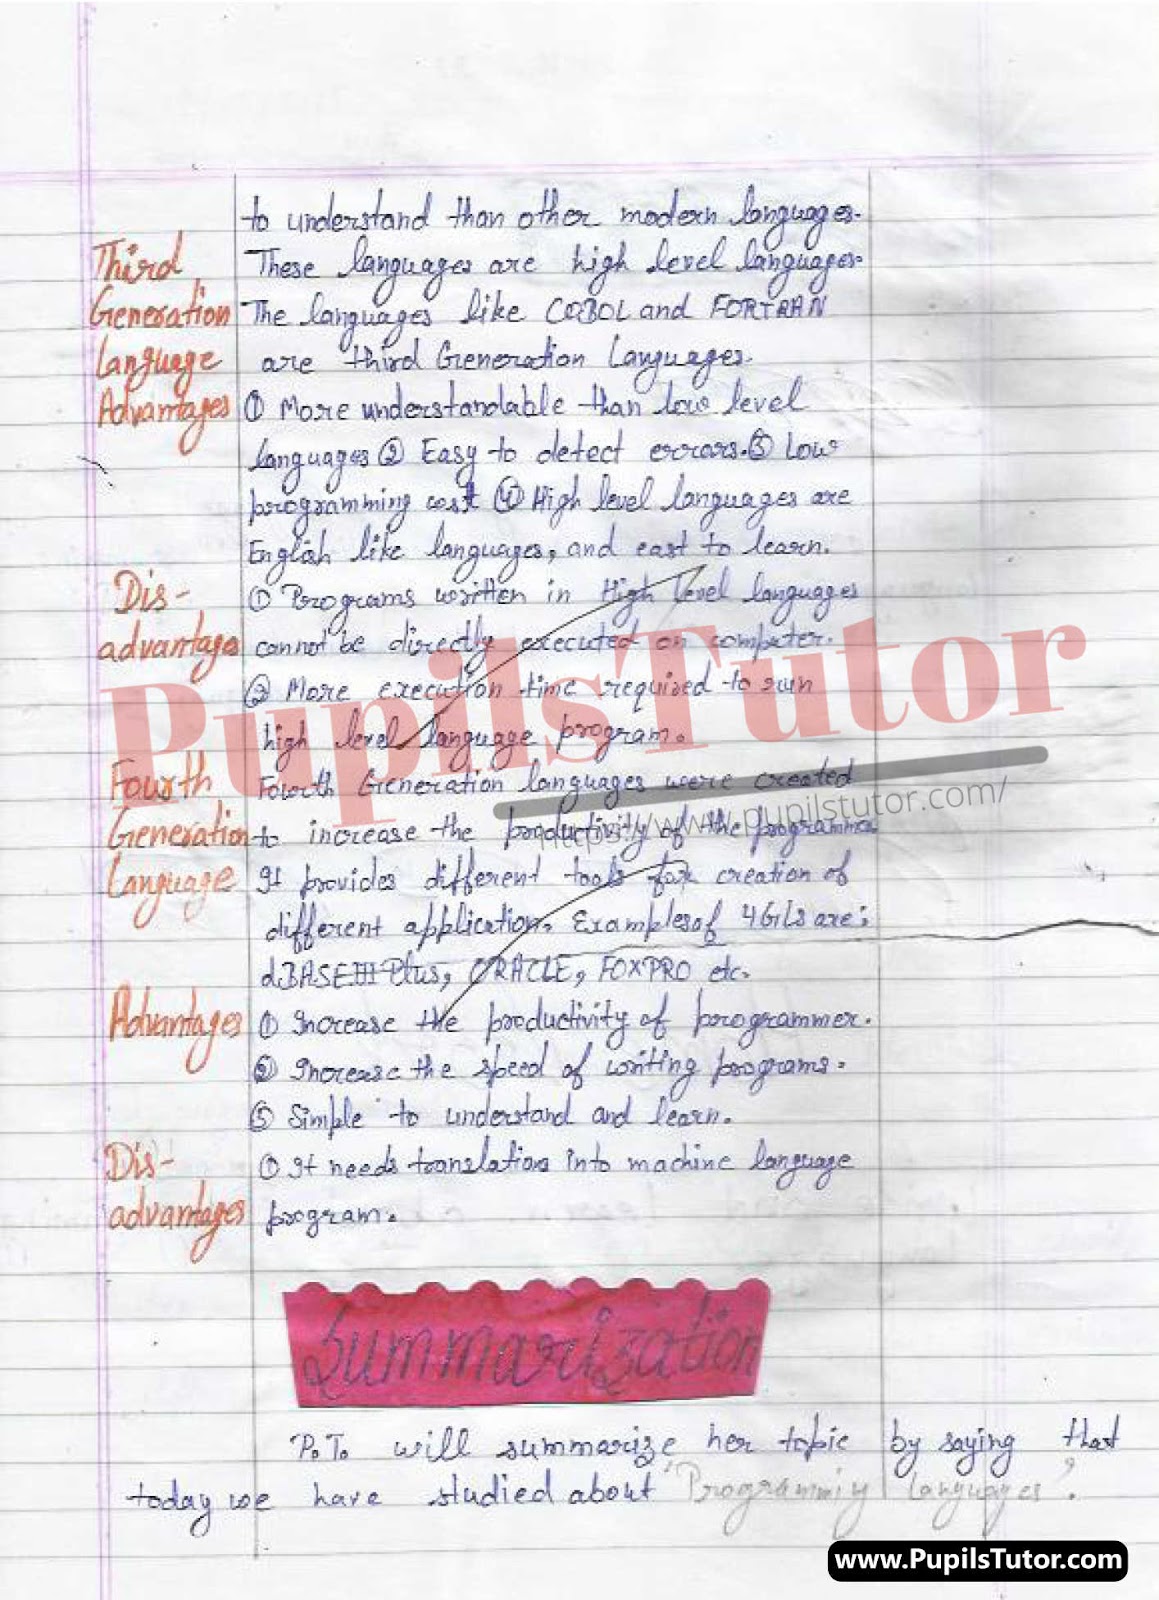 to understand than other modern languages.
Third These languages are high level languages.
Generation The languages like COBOL and FORTRAN
Language are third Generation Languages.
Advantages ① More understandable than low level
languages ② Easy to detect errors. ③ Low
programming cost ④ High level languages are
English like languages, and east to learn.
Dis- ① Programs written in High Level languages
advantage cannot be directly executed on computer.
② More execution time required to run
high level language program.
Fourth Fourth Generation languages were created
Generation to increase the productivity of the programmer
Language It provides different tools for creation of
different application. Examples of 4GLs are:
dBASE III Plus, ORACLE, FOXPRO etc.
Advantages ① Increase the productivity of programmer.
② Increase the speed of writing programs.
③ Simple to understand and learn.
Dis- ① It needs translations into machine language
advantages program.
Summarization
P.T. will summarize her topic by saying that
today we have studied about 'Programmiy languages'.
PupilsTutor
https://www.pupilstutor.com/
www.PupilsTutor.com